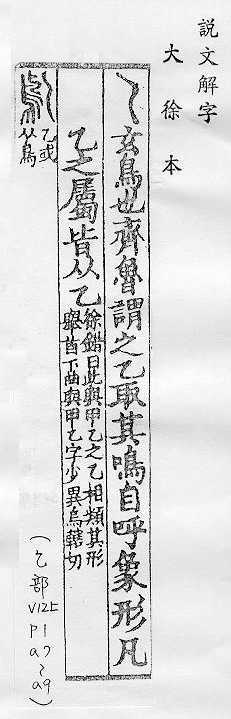 說文解字
大徐本
玄鳥也齊魯謂之乙取其鳴自呼象形凡
乙之屬皆从乙
徐鍇曰此與甲乙之乙相類其形
舉首下曲與甲乙字少異烏轄切
乙或
从鳥
(乙部
V12上
P17
a9)